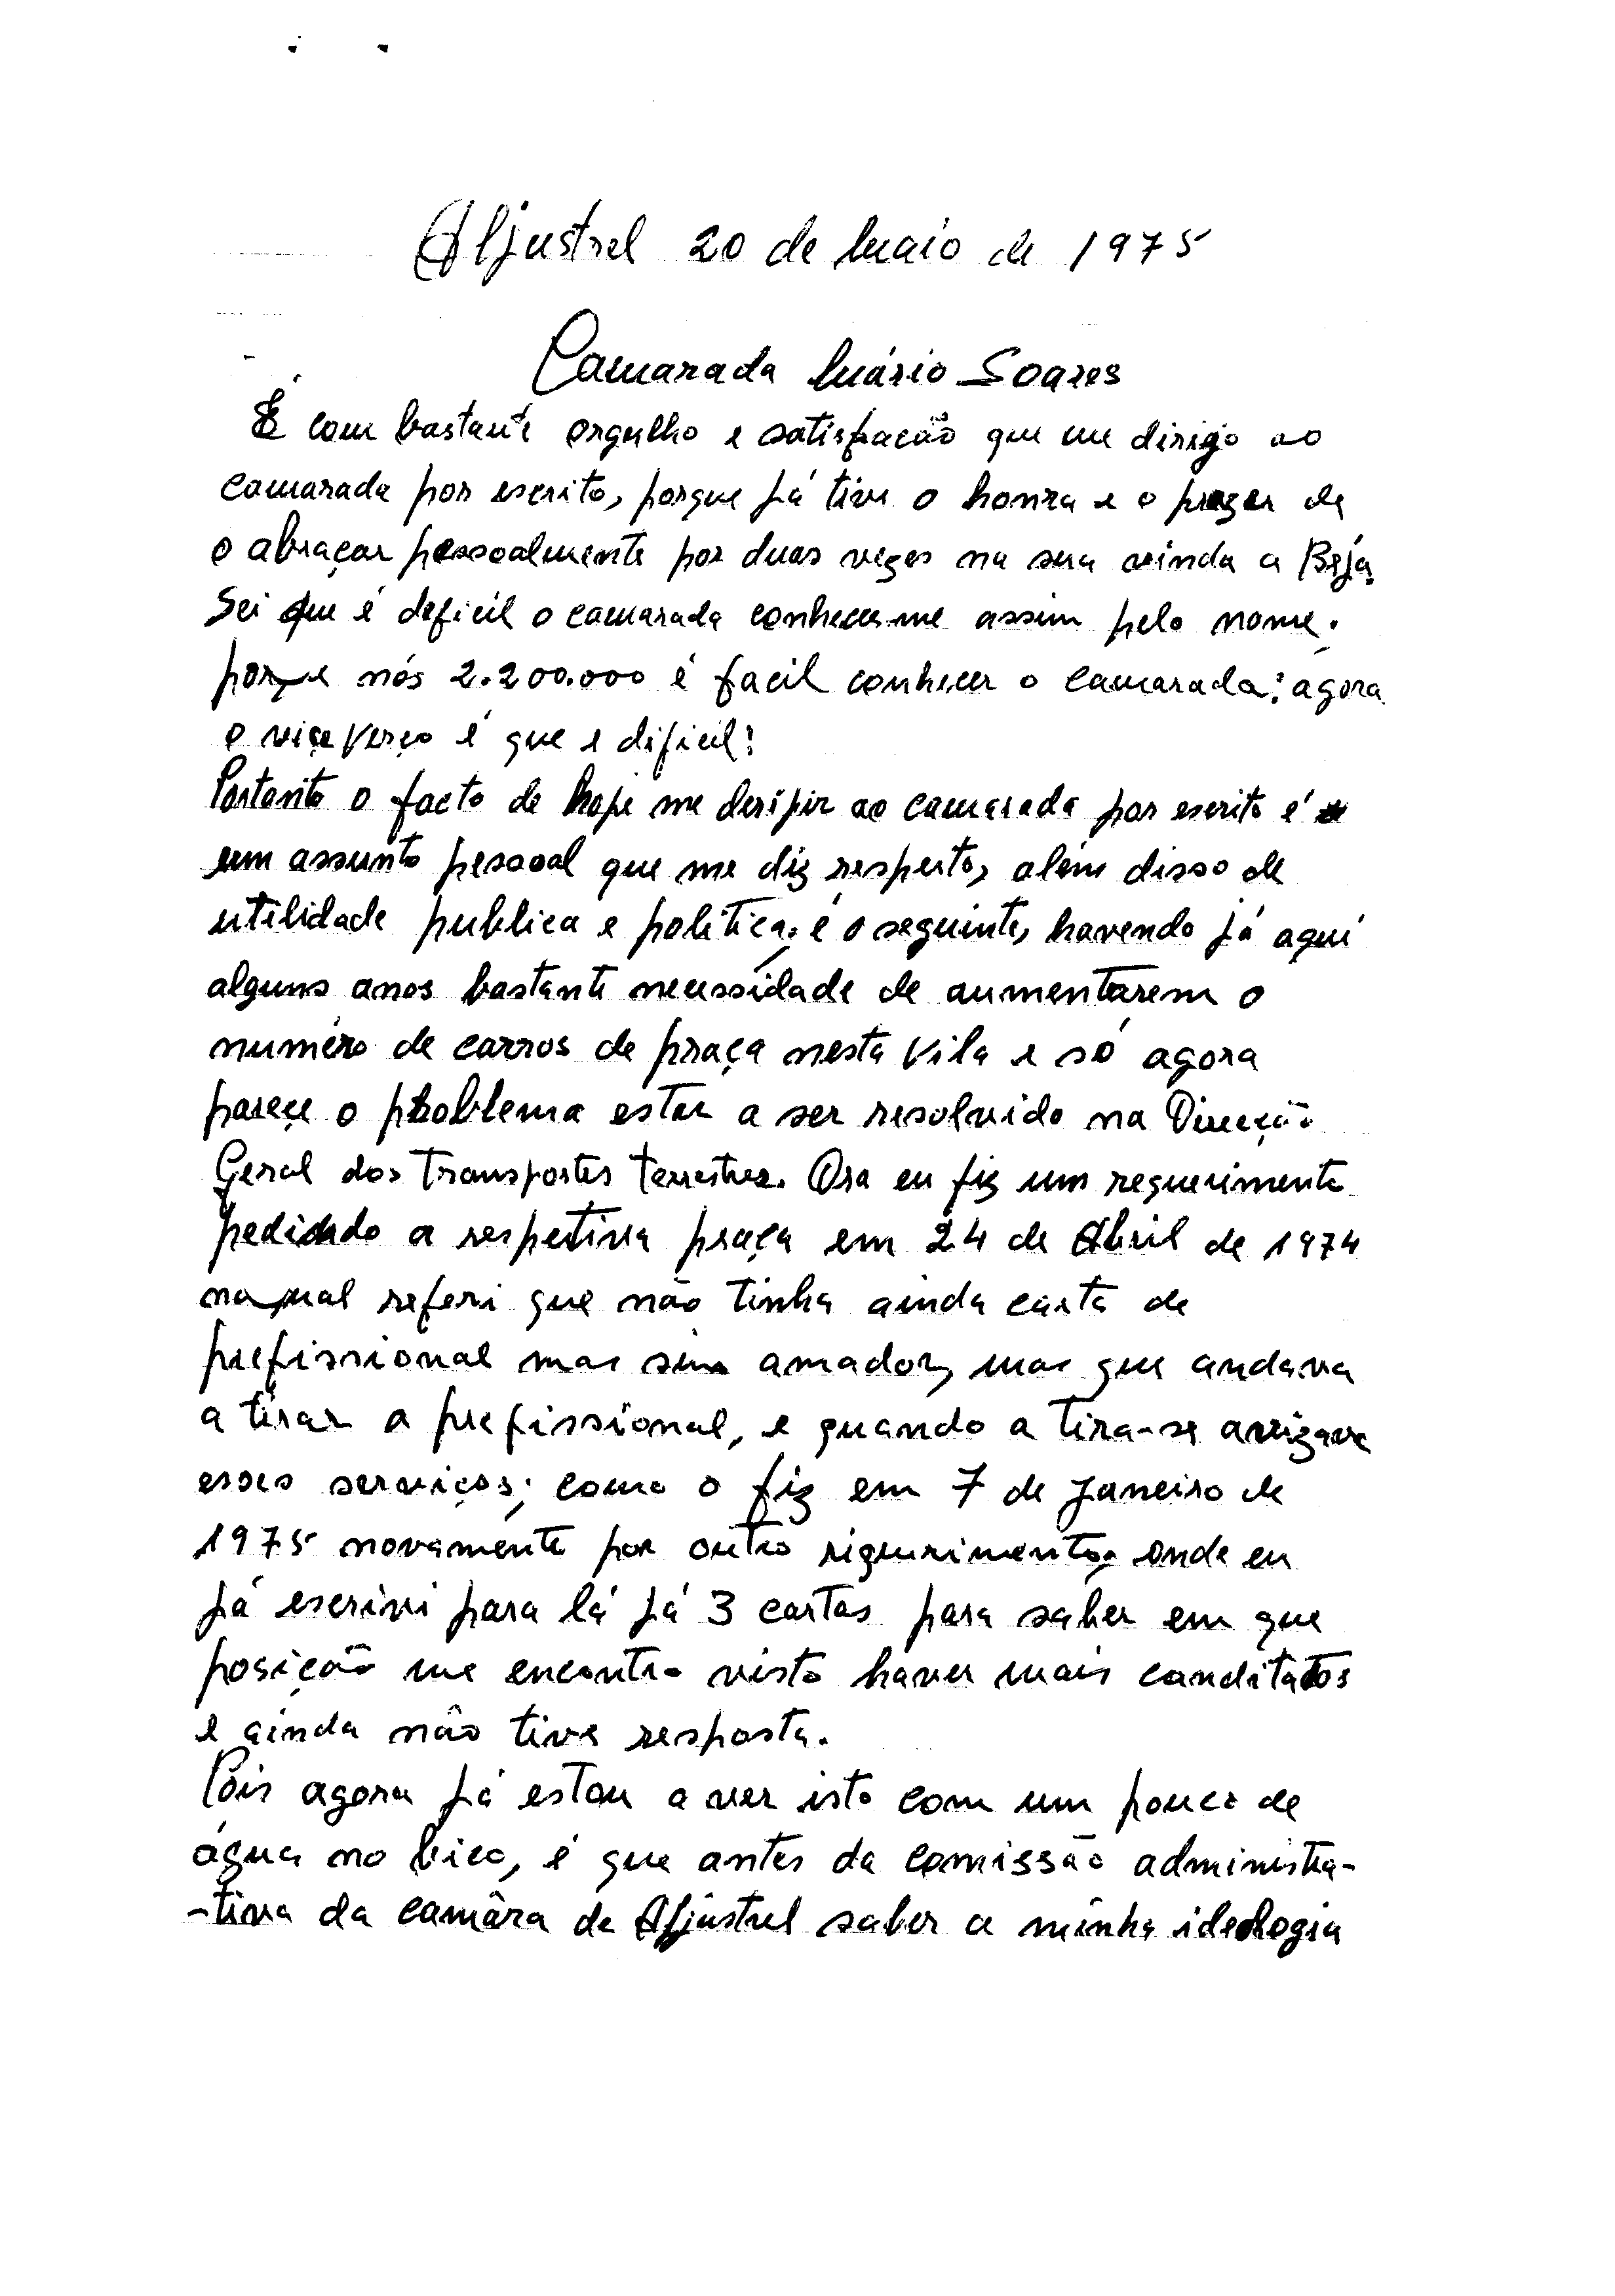 Aljustrel 20 de Maio de 1975
Camarada Mário Soares
É com bastante orgulho e satisfacão que me dirijo ao
camarada por escrito, porque já tive o honra e o prazer de
o abraçar pessoalmente por duas vezes na sua vinda a Beja,
Sei que é deficil o camarada conhecer-me assim pelo nome.
porque nós 2.200.000 é facil conhecer o camarada: agora
o viçe verço é que e dificil!
Portanto o facto de hoje me derijir ao camarada por escrito é
um assunto pessoal que me diz respeito, além disso de
utilidade publica e politica. é o seguinte, havendo já aqui
alguns anos bastante necessidade de aumentarem o
numéro de carros de praça nesta Vila e só agora
pareçe o problema estar a ser resolvido na Direcção
Geral dos Transportes Terrestres. Ora eu fiz um requerimento
pedidado a respetiva praça em 24 de Abril de 1974
na qual referi que não tinha ainda carta de
prefissional mas sim amador, mas que andava
a tirar a prefissional, e quando a tira-se avizava
esses serviços; como o fiz em 7 de Janeiro de
1975 novamente por outro riquerimento, onde eu
já escrivi para lá já 3 cartas para saber em que
posição me encontro visto haver mais canditatos
e ainda não tive resposta.
Pois agora já estou a ver isto com um pouco de
água no bico, é que antes da comissão administra-
-tiva da camâra de Aljustrel saber a minha ideologia